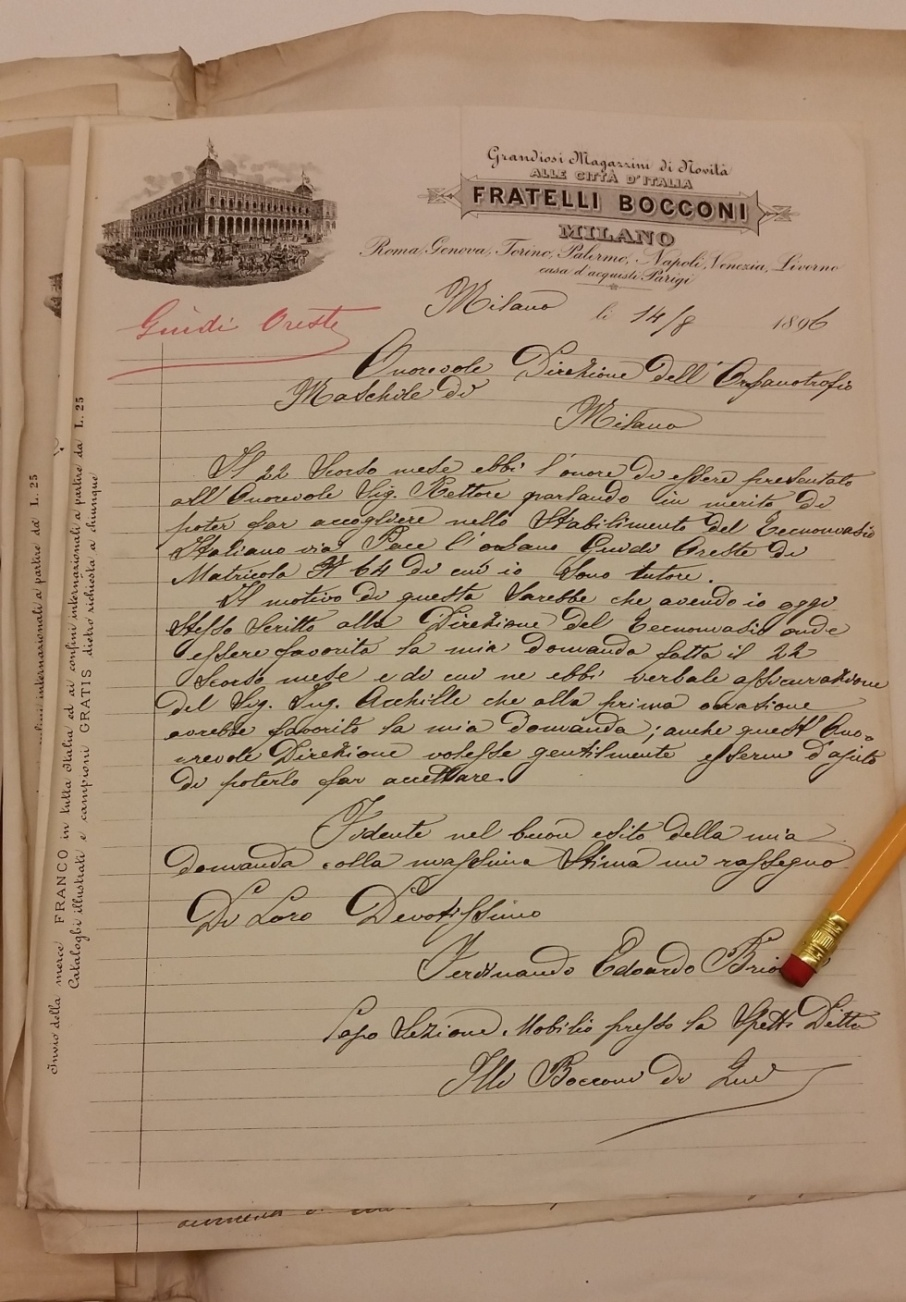 Grandiosi Magazzini di Novità
ALLE CITTÀ D'ITALIA
FRATELLI BOCCONI
MILANO
Roma, Genova, Torino, Palermo, Napoli, Venezia, Livorno
casa d'acquisti Parigi
Milano li 14/8 1896
Guidi Oreste
Onorevole Direzione dell'Orfanotrofio
Maschile di
Milano
Il 22 scorso mese ebbi l'onore di essere presentato
all'Onorevole Sig. Rettore parlando in merito di
poter far accogliere nello Stabilimento del Tecnomasio
Italiano via Pace l'orfano Guidi Oreste di
Matricola N° 64 di cui io sono tutore.
Il motivo di questa sarebbe che avendo io oggi
stesso scritto alla Direzione del Tecnomasio onde
essere favorita la mia domanda fatta il 22
scorso mese e di cui ne ebbi verbale assicurazione
del Sig. Ing. Acchille che alla prima occasione
avrebbe favorito la mia domanda; anche quest'Ono-
revole Direzione volesse gentilmente essermi d'ajuto
di poterlo far accettare.
Fidente nel buon esito della mia
domanda colla massima stima mi rassegno
Di Loro Devotissimo
Ferdinando Edoardo
Capo Sezione Mobilio presso la Spett. Ditta
Flli Bocconi di
Invio della merce FRANCO in tutta Italia ed ai confini internazionali a partire da L. 25
Cataloghi illustrati e campioni GRATIS dietro richiesta a chiunque
internazionali a partire da L. 25